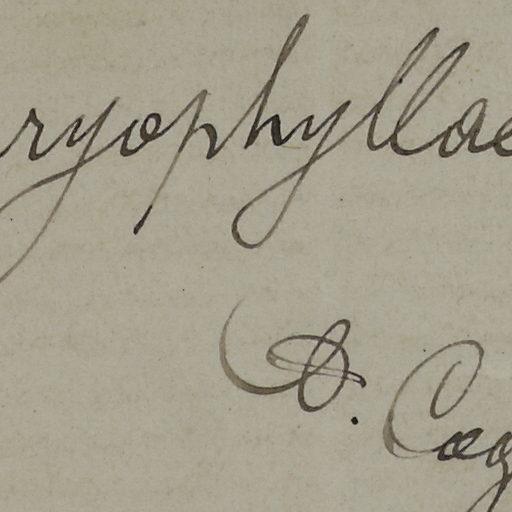 ryophyllae
A. Cog